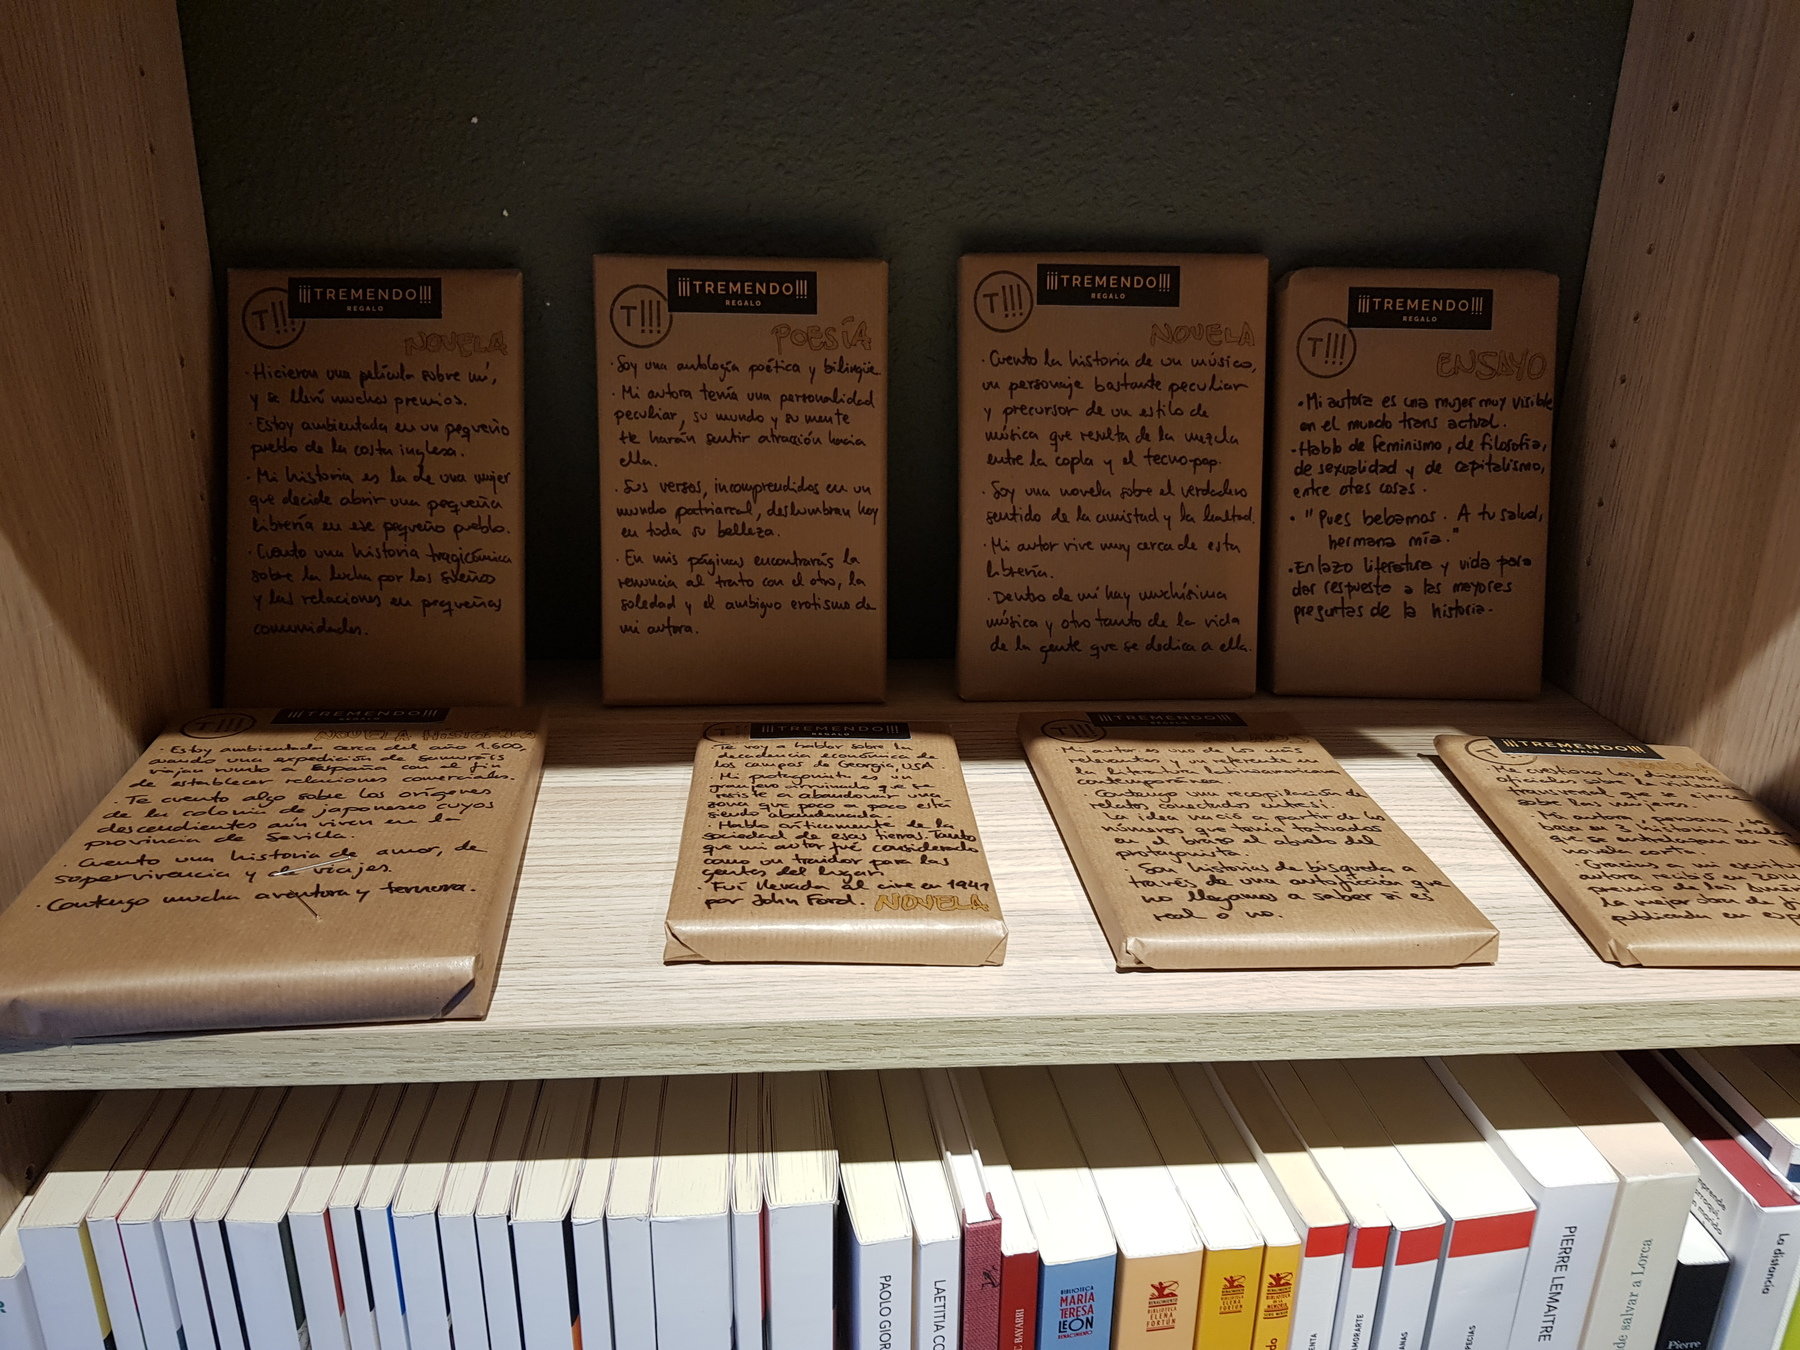 ¡¡¡TREMENDO!!!
REGALO
T!!!
NOVELA
· Hicieron una película sobre mí,
y se llevó muchos premios.
· Estoy ambientada en un pequeño
pueblo de la costa inglesa.
· Mi historia es la de una mujer
que decide abrir una pequeña
librería en ese pequeño pueblo.
· Cuento una historia tragicómica
sobre la lucha por los sueños
y las relaciones en pequeñas
comunidades.
¡¡¡TREMENDO!!!
REGALO
T!!!
POESÍA
· Soy una antología poética y bilingüe.
· Mi autora tenía una personalidad
peculiar, su mundo y su mente
te harán sentir atracción hacia
ella.
· Sus versos, incomprendidos en un
mundo patriarcal, deslumbran hoy
en toda su belleza.
· En mis páginas encontrarás la
renuncia al trato con el otro, la
soledad y el ambiguo erotismo de
mi autora.
¡¡¡TREMENDO!!!
REGALO
T!!!
NOVELA
· Cuento la historia de un músico,
un personaje bastante peculiar
y precursor de un estilo de
música que resulta de la mezcla
entre la copla y el tecno-pop.
· Soy una novela sobre el verdadero
sentido de la amistad y la lealtad.
· Mi autor vive muy cerca de esta
librería.
· Dentro de mí hay muchísima
música y otro tanto de la vida
de la gente que se dedica a ella.
¡¡¡TREMENDO!!!
REGALO
T!!!
ENSAYO
· Mi autora es una mujer muy visible
en el mundo trans actual.
· Hablo de feminismo, de filosofía,
de sexualidad y de capitalismo,
entre otas cosas.
· "Pues bebamos. A tu salud,
hermana mía."
· Enlazo literatura y vida para
dar respuesta a las mayores
preguntas de la historia.
¡¡¡TREMENDO!!!
REGALO
T!!!
NOVELA HISTÓRICA
· Estoy ambientada cerca del año 1.600,
cuando una expedición de Samuráis
viajan rumbo a España con el fin
de establecer relaciones comerciales.
· Te cuento algo sobre los orígenes
de la colonia de japoneses cuyos
descendientes aún viven en la
provincia de Sevilla.
· Cuento una historia de amor, de
supervivencia y de viajes.
· Contengo mucha aventura y ternura.
¡¡¡TREMENDO!!!
REGALO
· Te voy a hablar sobre la
decadencia económica de
los campos de Georgia, USA.
· Mi protagonista es un
granjero arruinado que se
resiste a abandonar una
zona que poco a poco está
siendo abandonada.
· Hablo críticamente de la
sociedad de esas tierras. Tanto
que mi autor fué considerado
como un traidor para las
gentes del lugar.
· Fuí llevada al cine en 1941
por John Ford. NOVELA
¡¡¡TREMENDO!!!
REGALO
· Mi autor es uno de los más
relevantes y un referente en
la literatura latinoamericana
contemporánea.
· Contengo una recopilación de
relatos conectados entre sí.
· La idea nació a partir de los
números que tenía tatuados
en el brazo el abuelo del
protagonista.
· Son historias de búsqueda a
través de una autoficción que
no llegamos a saber si es
real o no.
¡¡¡TREMENDO!!!
REGALO
NOVELA
· Me cuestiono los discursos
oficiales sobre la violencia
transversal que se ejerce
sobre las mujeres.
· Mi autora, peruana, se
basa en 3 historias reales
que se entrelazan en es
novela corta.
· Gracias a mi escritu
autora recibió en 2014
premio de las
la mejor obra de
publicada en esp
PAOLO GIOR
LAETITIA CO
BIBLIOTECA
MARÍA
TERESA
LEÓN
RENACIMIENTO
RENACIMIENTO
BIBLIOTECA
ELENA
FORTÚN
RENACIMIENTO
BIBLIOTECA
ELENA
FORTÚN
BIBLIOTECA
DE LA
MEMORIA
PIERRE LEMAITRE
de salvar a Lorca
Pierre
La distancia